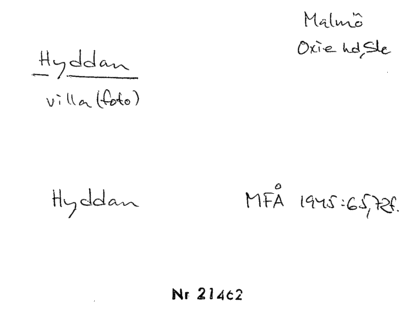 Malmö
Oxie hd, Sk
Hyddan
villa (foto)
Hyddan MFÅ 1945:65,72f.
Nr 21462